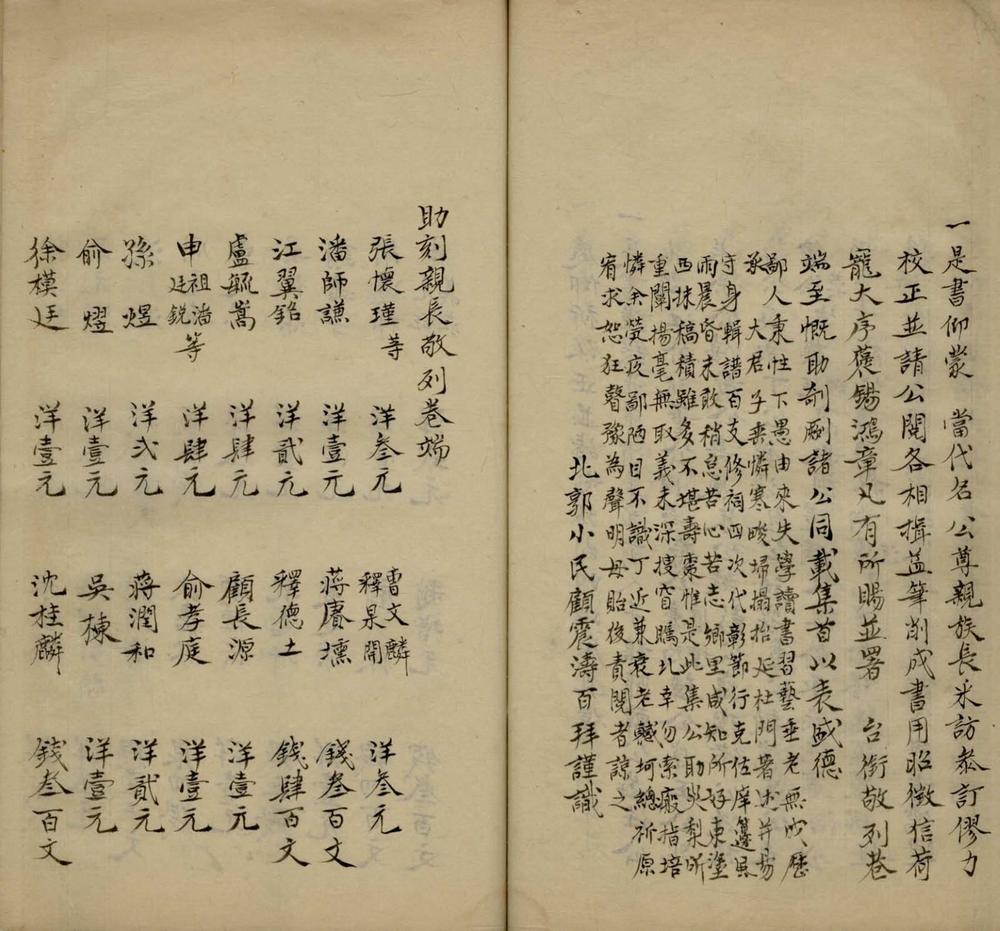 一是書仰蒙　當代名公尊親族長采訪叅訂僇力
校正並請公閱各相揖益筆削成書用昭徵信荷
寵大序褒錫鴻章凡有所賜並署　台銜敬列卷
端至慨助剞劂諸公同載集首以表盛德
鄙人秉性下愚由來失學讀書習藝垂老無吹歷
承　大君子垂憐寒畯埽搨抬延杜門著述并易
守身輯譜百支修祠四次代彰節行克佐庠
雨晨昏未敢稍怠苦心苦志鄉里咸知所好東塗
西抹稿積雖多不堪壽棗惟是此集公助災梨所
重闡揚毫無取義未深搜窅騰北幸勿索瘢指培
憐余煢疚鄙陋目不識丁近兼衰老轗坷總祈原
宥求恕狂瞽豫為聲明毋貽後責閱者諒之
北郭小民顧震濤百拜謹識
助刻親長敬列卷端
張懷瑾等　洋叁元　曹文麟　釋杲開　洋叁元
潘師謙　洋壹元　蔣賡壎　錢叁百文
江翼鉛　洋貳元　釋德土　錢肆百文
盧毓嵩　洋肆元　顧長源　洋壹元
申祖潘廷銳等　洋肆元　俞孝庭　洋壹元
孫煜　洋弍元　蔣潤和　洋貳元
俞熠　洋壹元　吳棟　洋壹元
徐模廷　洋壹元　沈桂麟　錢叁百文